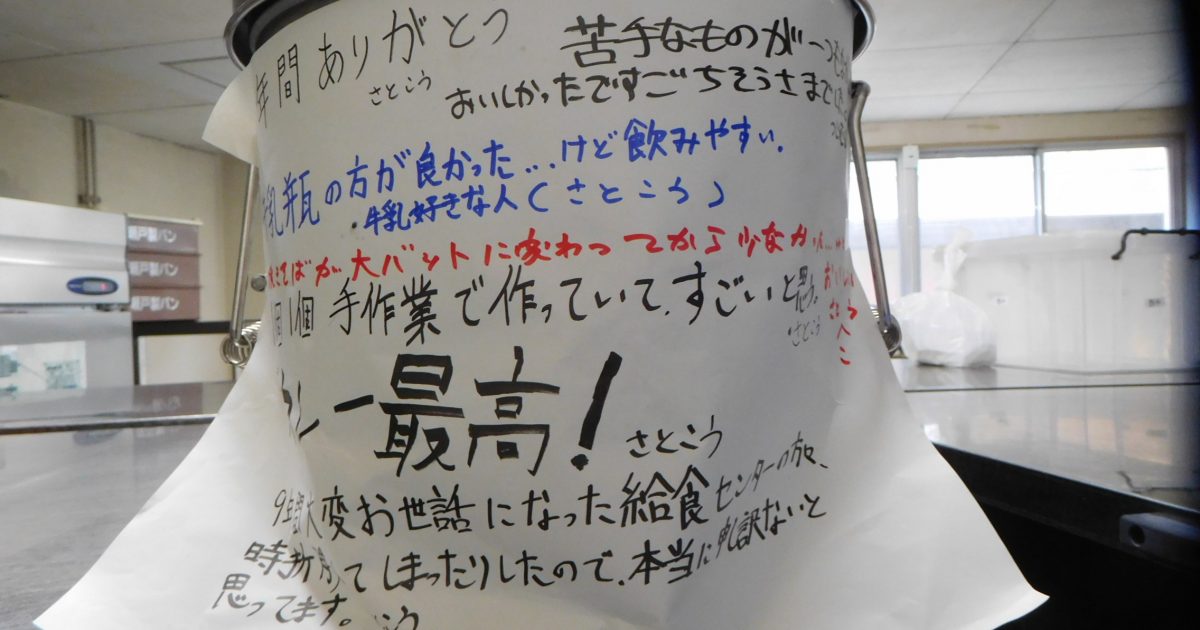 年間ありがとう
さとこう
苦手なものが一つ
おいしかったですごちそうさまでした
牛乳瓶の方が良かった...けど飲みやすい.
・牛乳好きな人(さとこう)
ばが大バットに変わってから少なか
個1個手作業で作っていて.すごいと思う。
さとこう
カレー最高!
さとこう
9年間大変お世話になった給食センターの方に、
時折残してしまったりしたので、本当に申し訳ないと
思ってます。
瀬戸製パン
瀬戸製パン
瀬戸製パン